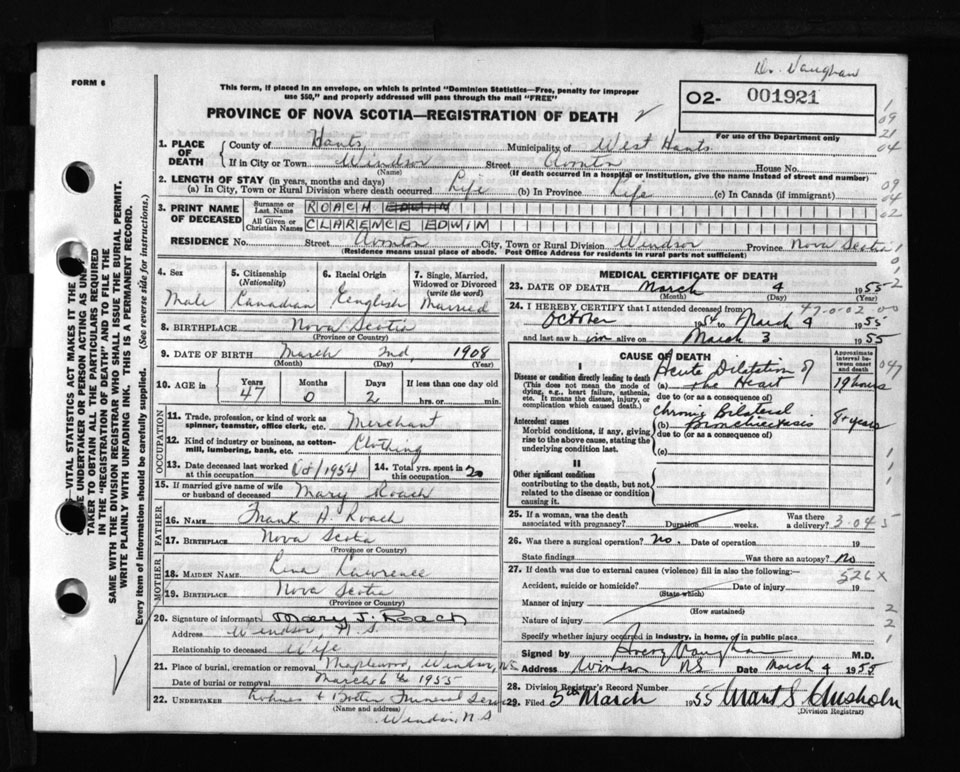 Dr. Vaughan
FORM 6
This form, if placed in an envelope, on which is printed "Dominion Statistics—Free, penalty for improper
use $50," and properly addressed will pass through the mail "FREE"
PROVINCE OF NOVA SCOTIA—REGISTRATION OF DEATH
02- 001921
For use of the Department only
1
09
21
04
1. PLACE OF DEATH
County of Hants Municipality of West Hants
If in City or Town Windsor Street Avonton House No.
(Name) (If death occurred in a hospital or institution, give the name instead of street and number)
2. LENGTH OF STAY (in years, months and days)
(a) In City, Town or Rural Division where death occurred Life (b) In Province Life (c) In Canada (if immigrant)
09
04
02
3. PRINT NAME OF DECEASED
Surname or Last Name ROACH EDWIN
All Given or Christian Names CLARENCE EDWIN
RESIDENCE No. Street Avonton City, Town or Rural Division Windsor Province Nova Scotia
(Residence means usual place of abode. Post Office Address for residents in rural parts not sufficient)
4. Sex Male
5. Citizenship (Nationality) Canadian
6. Racial Origin English
7. Single, Married, Widowed or Divorced (write the word) Married
8. BIRTHPLACE Nova Scotia
(Province or Country)
9. DATE OF BIRTH March 2nd, 1908
(Month) (Day) (Year)
10. AGE in Years 47 Months 0 Days 2 If less than one day old hrs. or min.
OCCUPATION
11. Trade, profession, or kind of work as spinner, teamster, office clerk, etc. Merchant
12. Kind of industry or business, as cotton-mill, lumbering, bank, etc. Clothing
13. Date deceased last worked at this occupation Oct/1954
14. Total yrs. spent in this occupation 20
15. If married give name of wife or husband of deceased Mary Roach
FATHER
16. NAME Frank A Roach
17. BIRTHPLACE Nova Scotia
(Province or Country)
MOTHER
18. MAIDEN NAME Lena Lawrence
19. BIRTHPLACE Nova Scotia
(Province or Country)
20. Signature of informant Mary J. Roach
Address Windsor, N.S.
Relationship to deceased Wife
21. Place of burial, cremation or removal Maplewood, Windsor, NS
Date of burial or removal March 6th 1955
22. UNDERTAKER Funeral Service
(Name and address)
Windsor, N.S
MEDICAL CERTIFICATE OF DEATH
23. DATE OF DEATH March 4 1955
(Month) (Day) (Year)
24. I HEREBY CERTIFY that I attended deceased from
October 1954 to March 4 1955
and last saw him alive on March 3 1955
CAUSE OF DEATH
Approximate interval between onset and death
I
Disease or condition directly leading to death
(This does not mean the mode of dying, e.g., heart failure, asthenia, etc. It means the disease, injury, or complication which caused death.)
(a) Acute Dilatation of the Heart 19 hours
due to (or as a consequence of)
Antecedent causes
Morbid conditions, if any, giving rise to the above cause, stating the underlying condition last.
(b) Chronic Bilateral Bronchiectasis 8 years
due to (or as a consequence of)
(c)
II
Other significant conditions
contributing to the death, but not related to the disease or condition causing it.
25. If a woman, was the death associated with pregnancy? Duration weeks. Was there a delivery?
26. Was there a surgical operation? No. Date of operation 19
State findings Was there an autopsy? No
27. If death was due to external causes (violence) fill in also the following:—
526 x
Accident, suicide or homicide? Date of injury 19
(State which)
Manner of injury
(How sustained)
Nature of injury
Specify whether injury occurred in industry, in home, or in public place
Signed by Avery Vaughan M.D.
Address Windsor NS Date March 4 1955
28. Division Registrar's Record Number
29. Filed 5th March 1955 Grant S. Chisholm
(Division Registrar)
VITAL STATISTICS ACT MAKES IT THE
UNDERTAKER OR PERSON ACTING AS
TAKER TO OBTAIN ALL THE PARTICULARS REQUIRED
IN THE "REGISTRATION OF DEATH" AND TO FILE THE
SAME WITH THE DIVISION REGISTRAR WHO SHALL ISSUE THE BURIAL PERMIT.
WRITE PLAINLY WITH UNFADING INK. THIS IS A PERMANENT RECORD.
Every item of information should be carefully supplied. (See reverse side for instructions.)